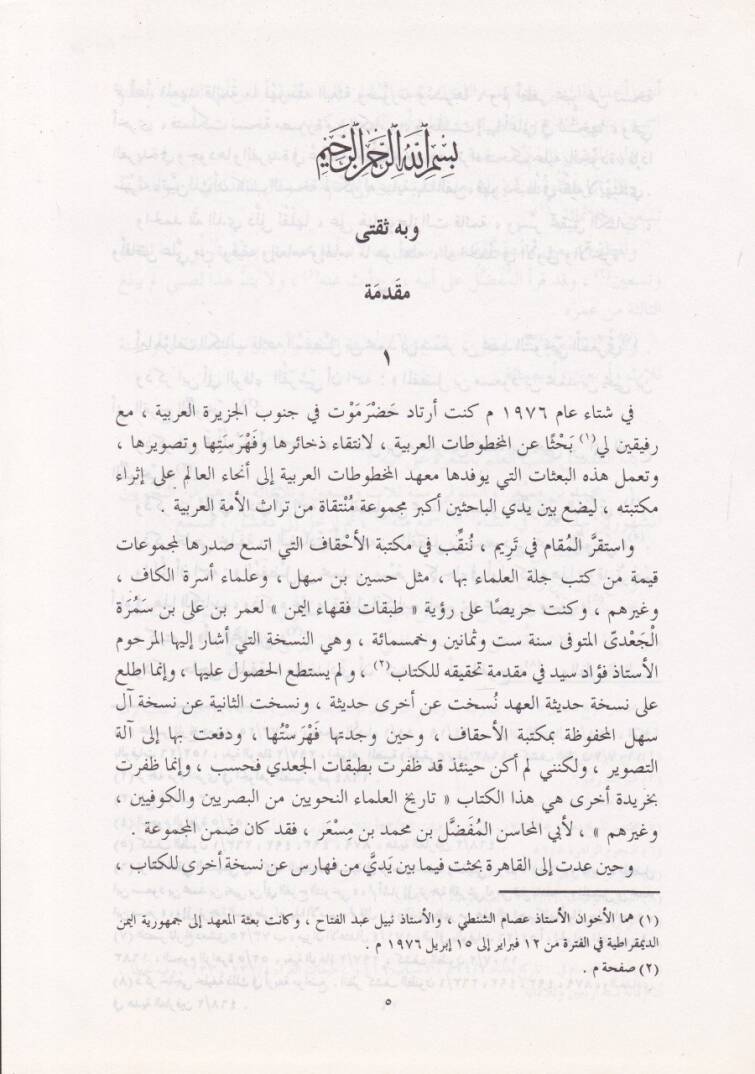 بسم الله الرحمن الرحيم
وبه ثقتى
مقَدمَة
١
في شتاء عام ١٩٧٦ م كنت أرتاد حَضْرَمَوْت في جنوب الجزيرة العربية ، مع
رفيقين لي(١) بَحْثًا عن المخطوطات العربية ، لانتقاء ذخائرها وفَهْرَسَتِها وتصويرها ،
وتعمل هذه البعثات التي يوفدها معهد المخطوطات العربية إلى أنحاء العالم على إثراء
مكتبته ، ليضع بين يدي الباحثين أكبر مجموعة مُنْتقاة من تراث الأمة العربية .
واستقرَّ المُقام في تَرِيم ، نُنقِّب في مكتبة الأحْقاف التي اتسع صدرها لمجموعات
قيمة من كتب جلة العلماء بها ، مثل حسين بن سهل ، وعلماء أسرة الكاف ،
وغيرهم ، وكنت حريصًا على رؤية « طبقات فقهاء اليمن » لعمر بن على بن سَمُرَة
الْجَعْدىّ المتوفى سنة ست وثمانين وخمسمائة ، وهي النسخة التي أشار إليها المرحوم
الأستاذ فؤاد سيد في مقدمة تحقيقه للكتاب(٢) ، ولم يستطع الحصول عليها ، وإنما اطلع
على نسخة حديثة العهد نُسخت عن أخرى حديثة ، ونسخت الثانية عن نسخة آل
سهل المحفوظة بمكتبة الأحقاف ، وحين وجدتها فَهْرَسْتُها ، ودفعت بها إلى آلة
التصوير ، ولكنني لم أكن حينئذ قد ظفرت بطبقات الجعدي فحسب ، وإنما ظفرت
بخريدة أخرى هي هذا الكتاب « تاريخ العلماء النحويين من البصريين والكوفيين ،
وغيرهم » ، لأبي المحاسن المُفَضَّل بن محمد بن مِسْعَر ، فقد كان ضمن المجموعة .
وحين عدت إلى القاهرة بحثت فيما بين يَديَّ من فهارس عن نسخة أخرى للكتاب ،
(١) هما الأخوان الأستاذ عصام الشنطي ، والأستاذ نبيل عبد الفتاح ، وكانت بعثة المعهد إلى جمهورية اليمن
الديمقراطية في الفترة من ١٢ فبراير إلى ١٥ إبريل ١٩٧٦ م .
(٢) صفحة م .
٥